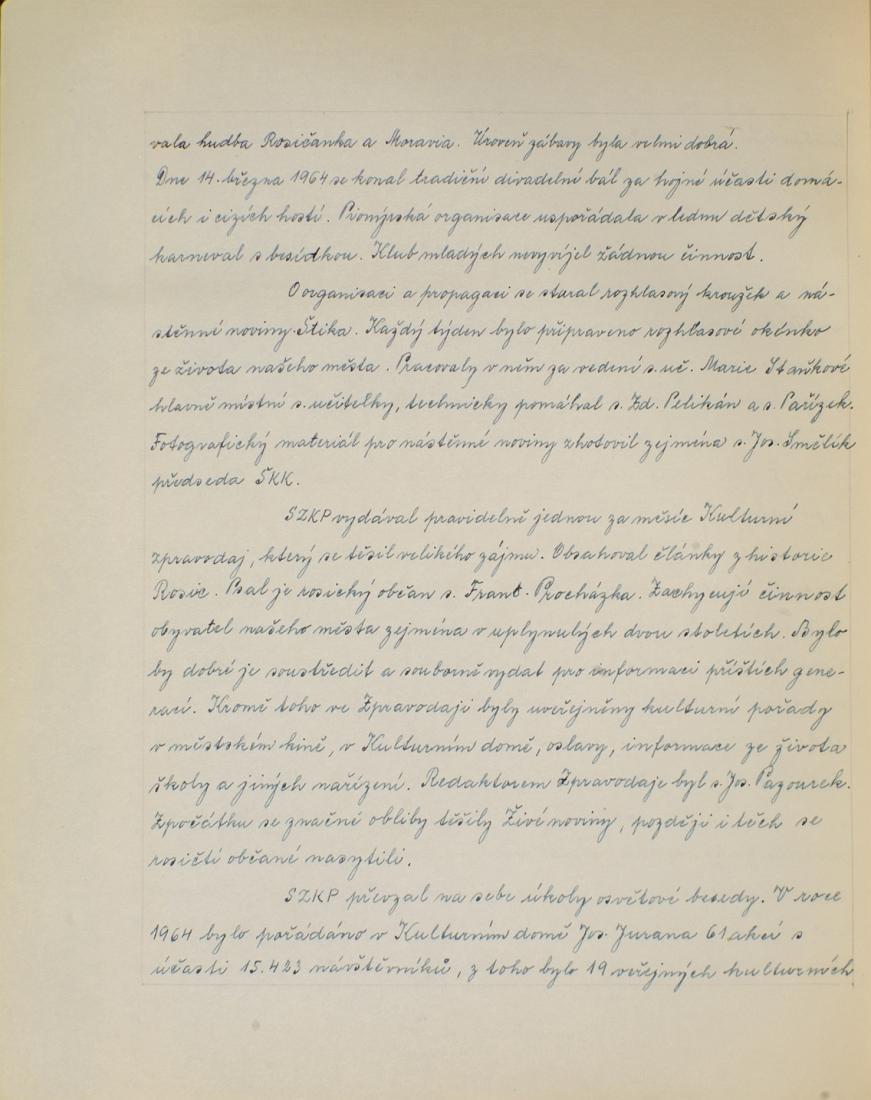 vala hudba Rosičanka a Moravia. Úroveň zábavy byla velmi dobrá.
Dne 14. března 1964 se konal tradiční divadelní bál za hojné účasti domá-
cích i cizích hostí. Pionýrská organisace uspořádala v lednu dětský
karneval s besídkou. Klub mladých nevyvíjel žádnou činnost.
O organisaci a propagaci se staral rozhlasový kroužek a ná-
stěnné noviny Štika. Každý týden bylo připraveno rozhlasové okénko
ze života našeho města. Pracovaly v něm za vedení s. uč. Marie Staňkové
hlavně místní s. učitelky, technicky pomáhal s. Zd. Pelikán a s. Pařízek.
Fotografický materiál pro nástěnné noviny zhotovil zejména s. Jos. Smělík
předseda ŠKK.
SZKP vydával pravidelně jednou za měsíc Kulturní
zpravodaj, který se těšil velikého zájmu. Obsahoval články z historie
Rosic. Psal je rosický občan s. Frant. Procházka. Zachycují činnost
obyvatel našeho města zejména v uplynulých dvou stoletích. Bylo
by dobré je soustředit a souborně vydat pro informaci příštích gene-
rací. Kromě toho ve Zpravodaji byly uveřejněny kulturní pořady
v městském kině, v Kulturním domě, oslavy, informace ze života
školy a jiných nařízení. Redaktorem Zpravodaje byl s. Jos. Pazourek.
Zpočátku se značné obliby těšily Živé noviny, později i těch se
rosičtí občané nasytili.
SZKP převzal na sebe úkoly osvětové besedy. V roce
1964 bylo pořádáno v Kulturním domě Jos. Jurana 61 akcí s
účasti 15.423 návštěvníků, z toho bylo 19 veřejných kulturních